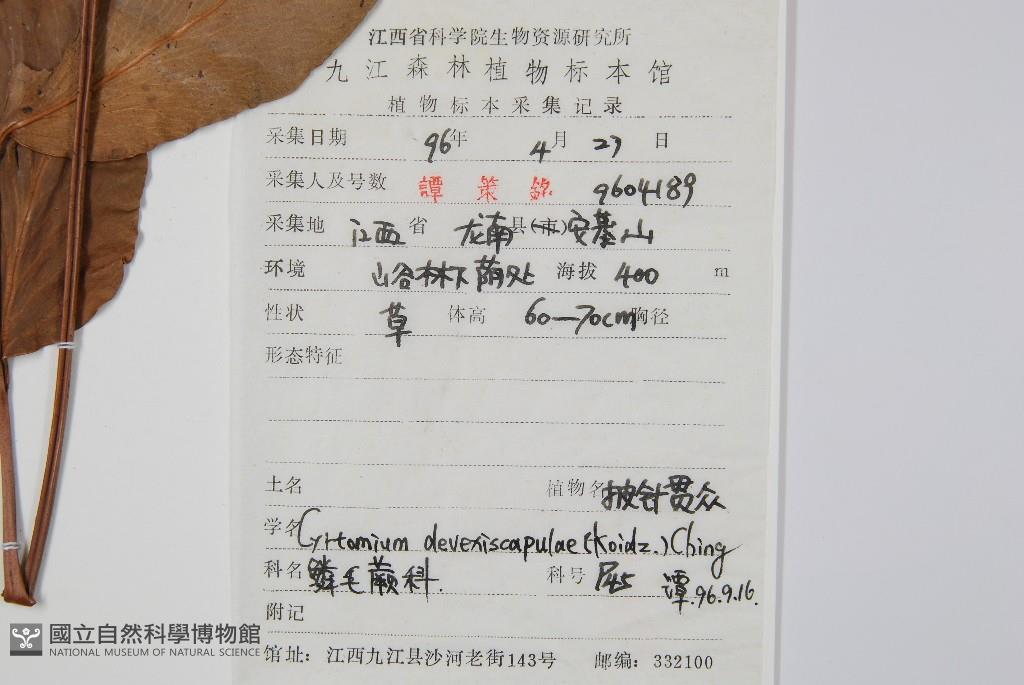 江西省科学院生物资源研究所
九江森林植物标本馆
植物标本采集记录
采集日期 96年 4月 27日
采集人及号数 譚策銘 9604189
采集地 江西省 龙南县(市)安基山
环境 山谷林下荫处 海拔 400 m
性状 草 体高 60—70cm胸径
形态特征
土名 植物名 披针贯众
学名 Cyrtomium devexiscapulae (Koidz.) Ching
科名 鳞毛蕨科. 科号 F45 譚.96.9.16.
附记
馆址：江西九江县沙河老街143号 邮编：332100
國立自然科學博物館
NATIONAL MUSEUM OF NATURAL SCIENCE